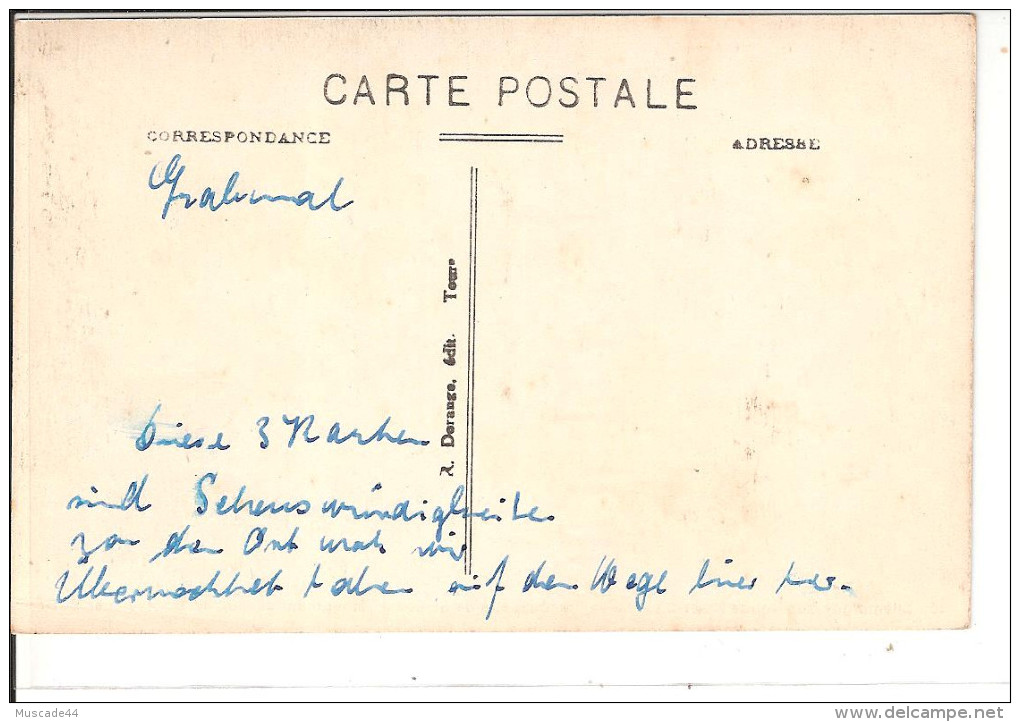 CARTE POSTALE
CORRESPONDANCE
ADRESSE
Grabmal
R. Dorange, édit. Tours
Diese 3 Karten
sind Sehenswürdigkeiten
von den Ort wo wir
Übernachtet haben auf dem Wege hier her.
Muscade44
www.delcampe.net